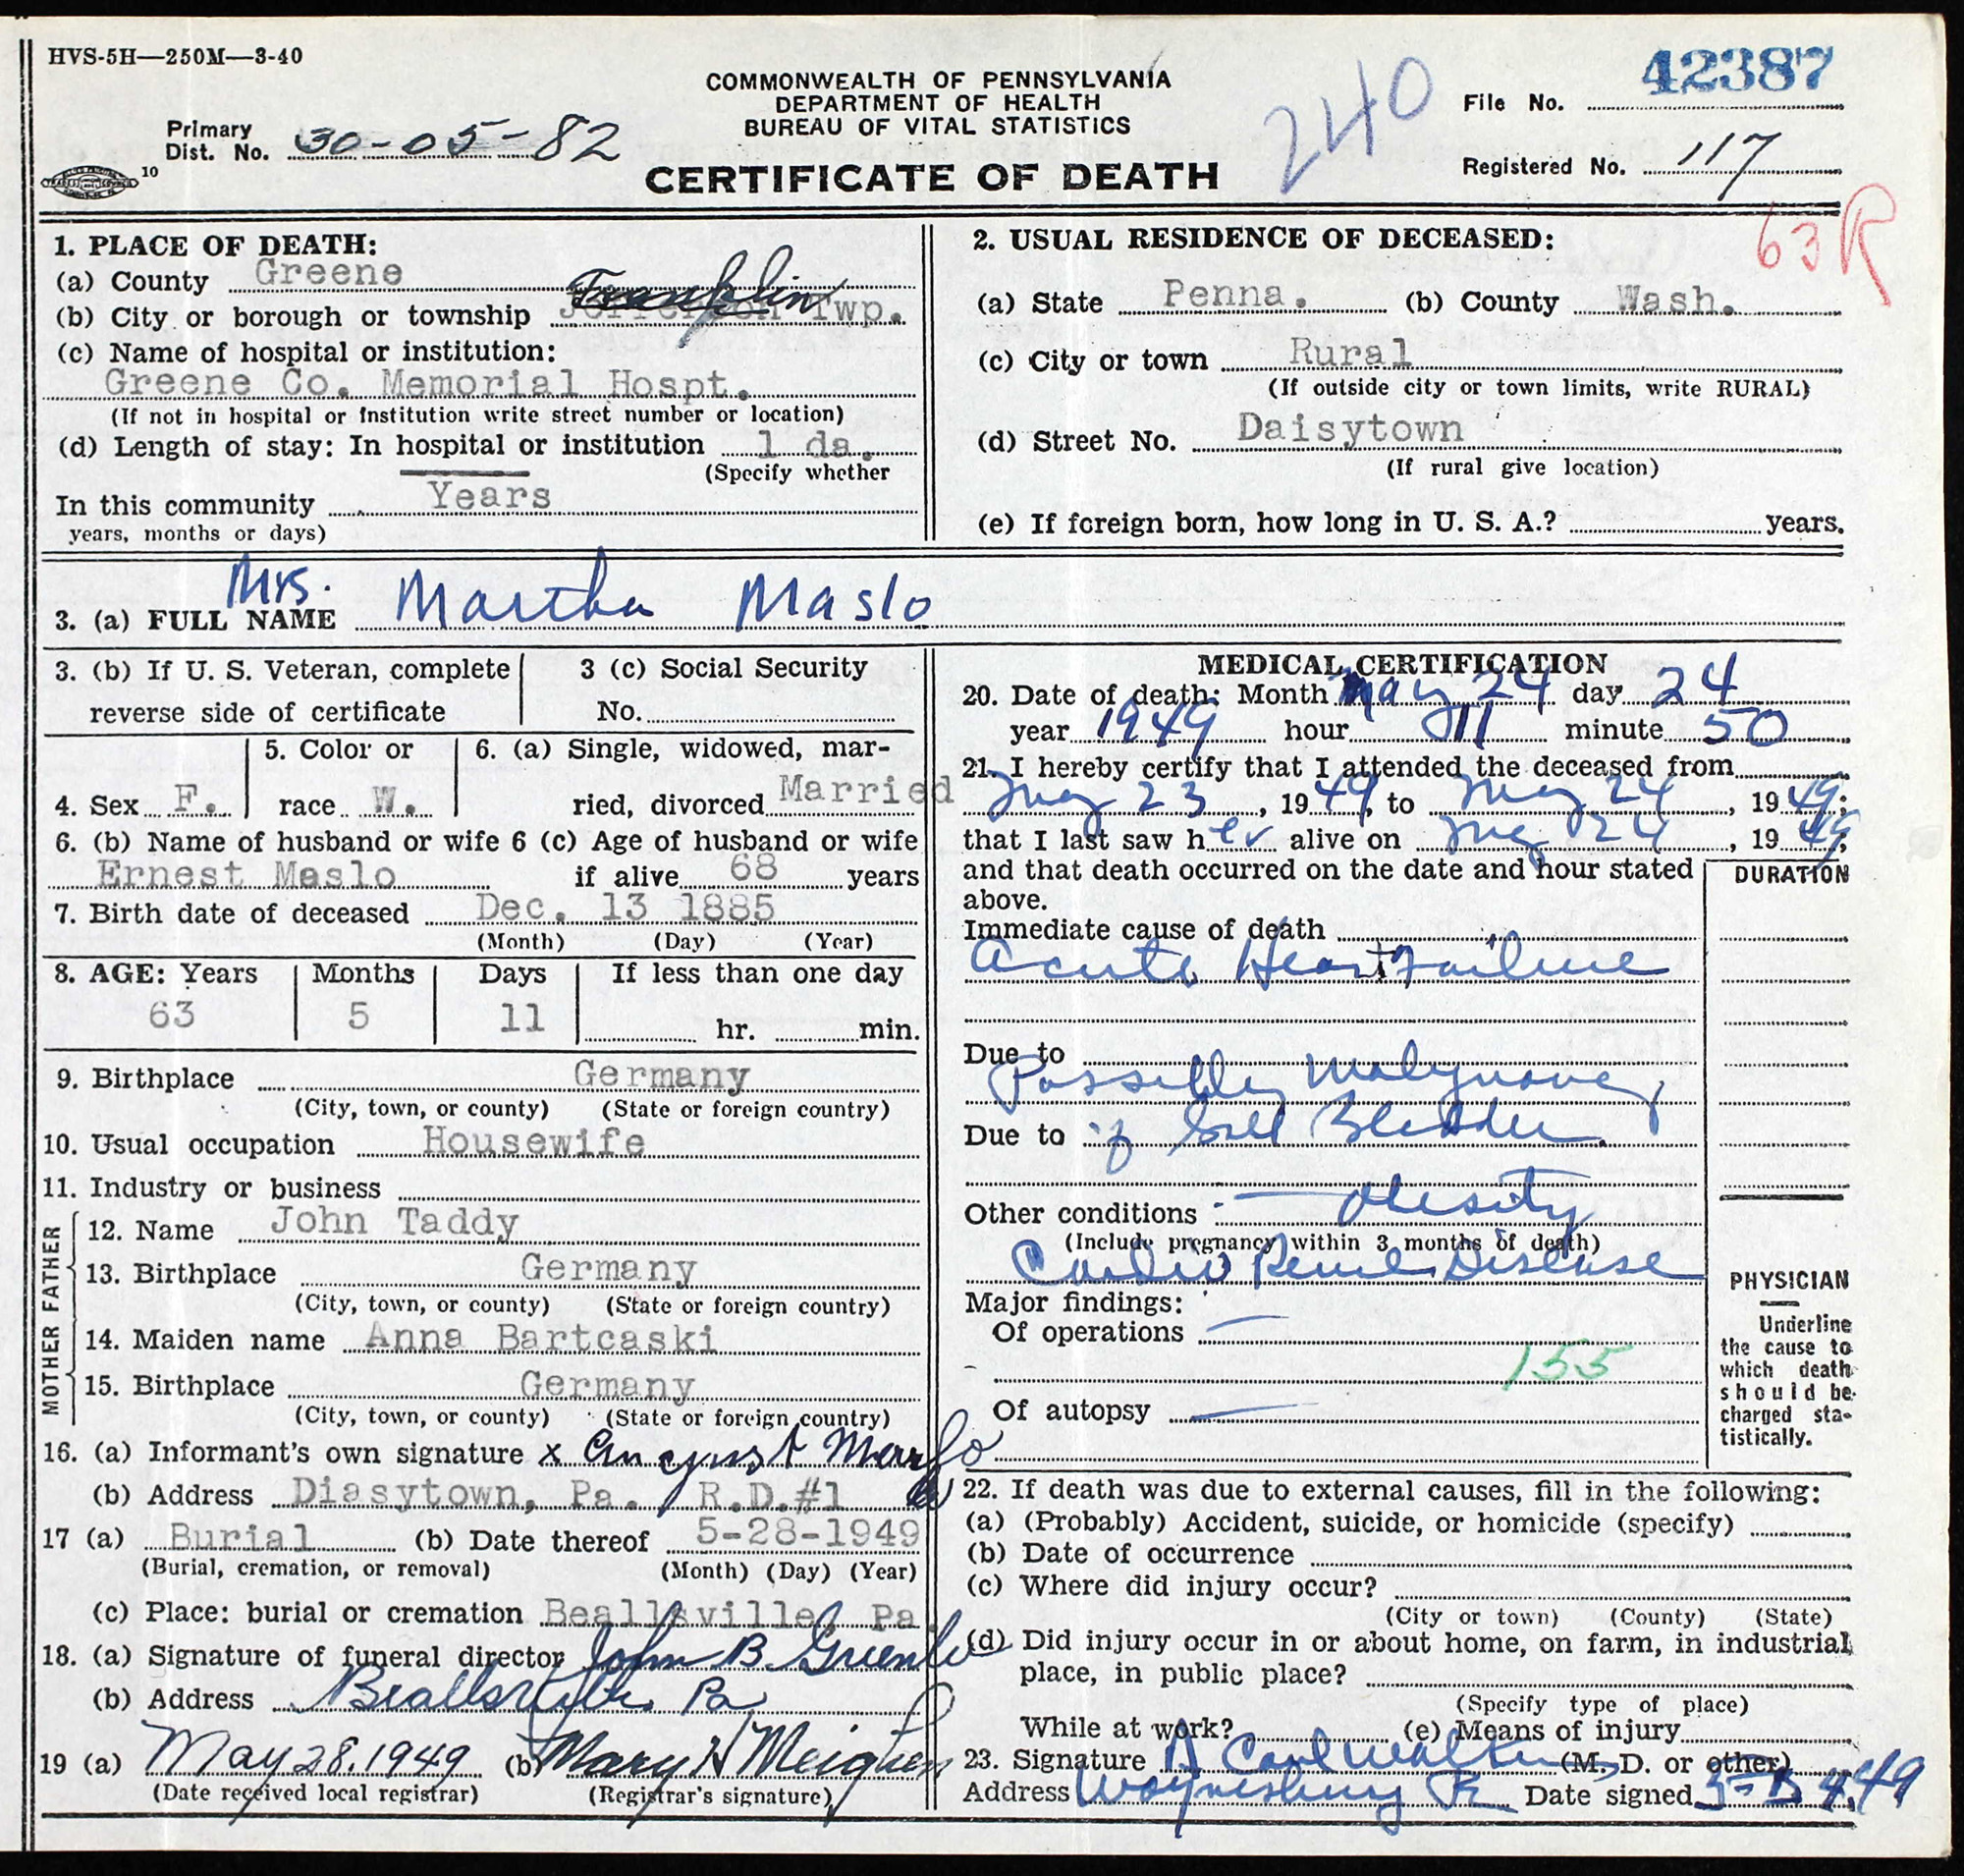 HVS-5H—250M—3-40
COMMONWEALTH OF PENNSYLVANIA
DEPARTMENT OF HEALTH
BUREAU OF VITAL STATISTICS
CERTIFICATE OF DEATH
240
File No. 42387
Primary
Dist. No. 30-05-82
10
Registered No. 117
63 R
1. PLACE OF DEATH:
(a) County Greene
(b) City or borough or township Jefferson Franklin Twp.
(c) Name of hospital or institution:
Greene Co. Memorial Hospt.
(If not in hospital or institution write street number or location)
(d) Length of stay: In hospital or institution 1 da.
(Specify whether
In this community Years
years, months or days)
2. USUAL RESIDENCE OF DECEASED:
(a) State Penna. (b) County Wash.
(c) City or town Rural
(If outside city or town limits, write RURAL)
(d) Street No. Daisytown
(If rural give location)
(e) If foreign born, how long in U. S. A.? years.
3. (a) FULL NAME Mrs. Martha Maslo
3. (b) If U. S. Veteran, complete
reverse side of certificate
3 (c) Social Security
No.
4. Sex F.
5. Color or
race W.
6. (a) Single, widowed, mar-
ried, divorced Married
6. (b) Name of husband or wife 6 (c) Age of husband or wife
Ernest Maslo if alive 68 years
7. Birth date of deceased Dec. 13 1885
(Month) (Day) (Year)
8. AGE: Years Months Days If less than one day
63 5 11 hr. min.
9. Birthplace Germany
(City, town, or county) (State or foreign country)
10. Usual occupation Housewife
11. Industry or business
FATHER
12. Name John Taddy
13. Birthplace Germany
(City, town, or county) (State or foreign country)
MOTHER
14. Maiden name Anna Bartcaski
15. Birthplace Germany
(City, town, or county) (State or foreign country)
16. (a) Informant's own signature x August Maslo
(b) Address Diasytown, Pa. R.D.#1
17 (a) Burial (b) Date thereof 5-28-1949
(Burial, cremation, or removal) (Month) (Day) (Year)
(c) Place: burial or cremation Beallsville, Pa.
18. (a) Signature of funeral director John B Greenlee
(b) Address Beallsville Pa
19 (a) May 28, 1949 (b) Mary H Meighen
(Date received local registrar) (Registrar's signature)
MEDICAL CERTIFICATION
20. Date of death: Month May 24 day 24
year 1949 hour 11 minute 50
21. I hereby certify that I attended the deceased from
May 23, 1949, to May 24, 1949;
that I last saw her alive on May 24, 1949;
and that death occurred on the date and hour stated
above.
DURATION
Immediate cause of death
Acute Heart Failure
Due to
Possible Malignancy
Due to of Gall Bladder
Other conditions — Obesity
(Include pregnancy within 3 months of death)
Cardio Renal Disease
Major findings:
Of operations —
155
Of autopsy —
PHYSICIAN
Underline
the cause to
which death
should be
charged sta-
tistically.
22. If death was due to external causes, fill in the following:
(a) (Probably) Accident, suicide, or homicide (specify)
(b) Date of occurrence
(c) Where did injury occur?
(City or town) (County) (State)
(d) Did injury occur in or about home, on farm, in industrial
place, in public place?
(Specify type of place)
While at work? (e) Means of injury
23. Signature Carl Walker (M. D. or other)
Address Waynesburg Pa Date signed